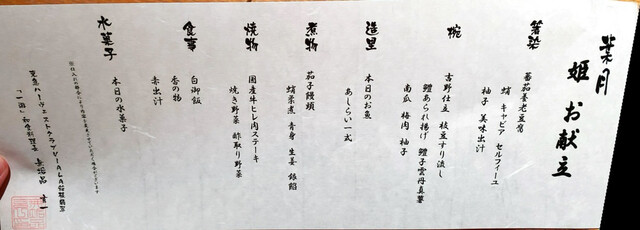 葉の月
姫 お献立
箸染
蕃茄養老豆腐
蛸 キャビア セルフィーユ
柚子 美味出汁
椀
吉野仕立 枝豆すり流し
鱧あられ揚げ 鱧子雲丹真薯
南瓜 梅肉 柚子
造里
本日のお魚
あしらい一式
煮物
茄子饅頭
蛸柔煮 青身 生姜 銀餡
焼物
国産牛ヒレ肉ステーキ
焼き野菜 酢取り野菜
食事
白御飯
香の物
赤出汁
水菓子
本日の水菓子
東急ハーヴェストクラブVIALA箱根翡翠
「一游」和食料理長